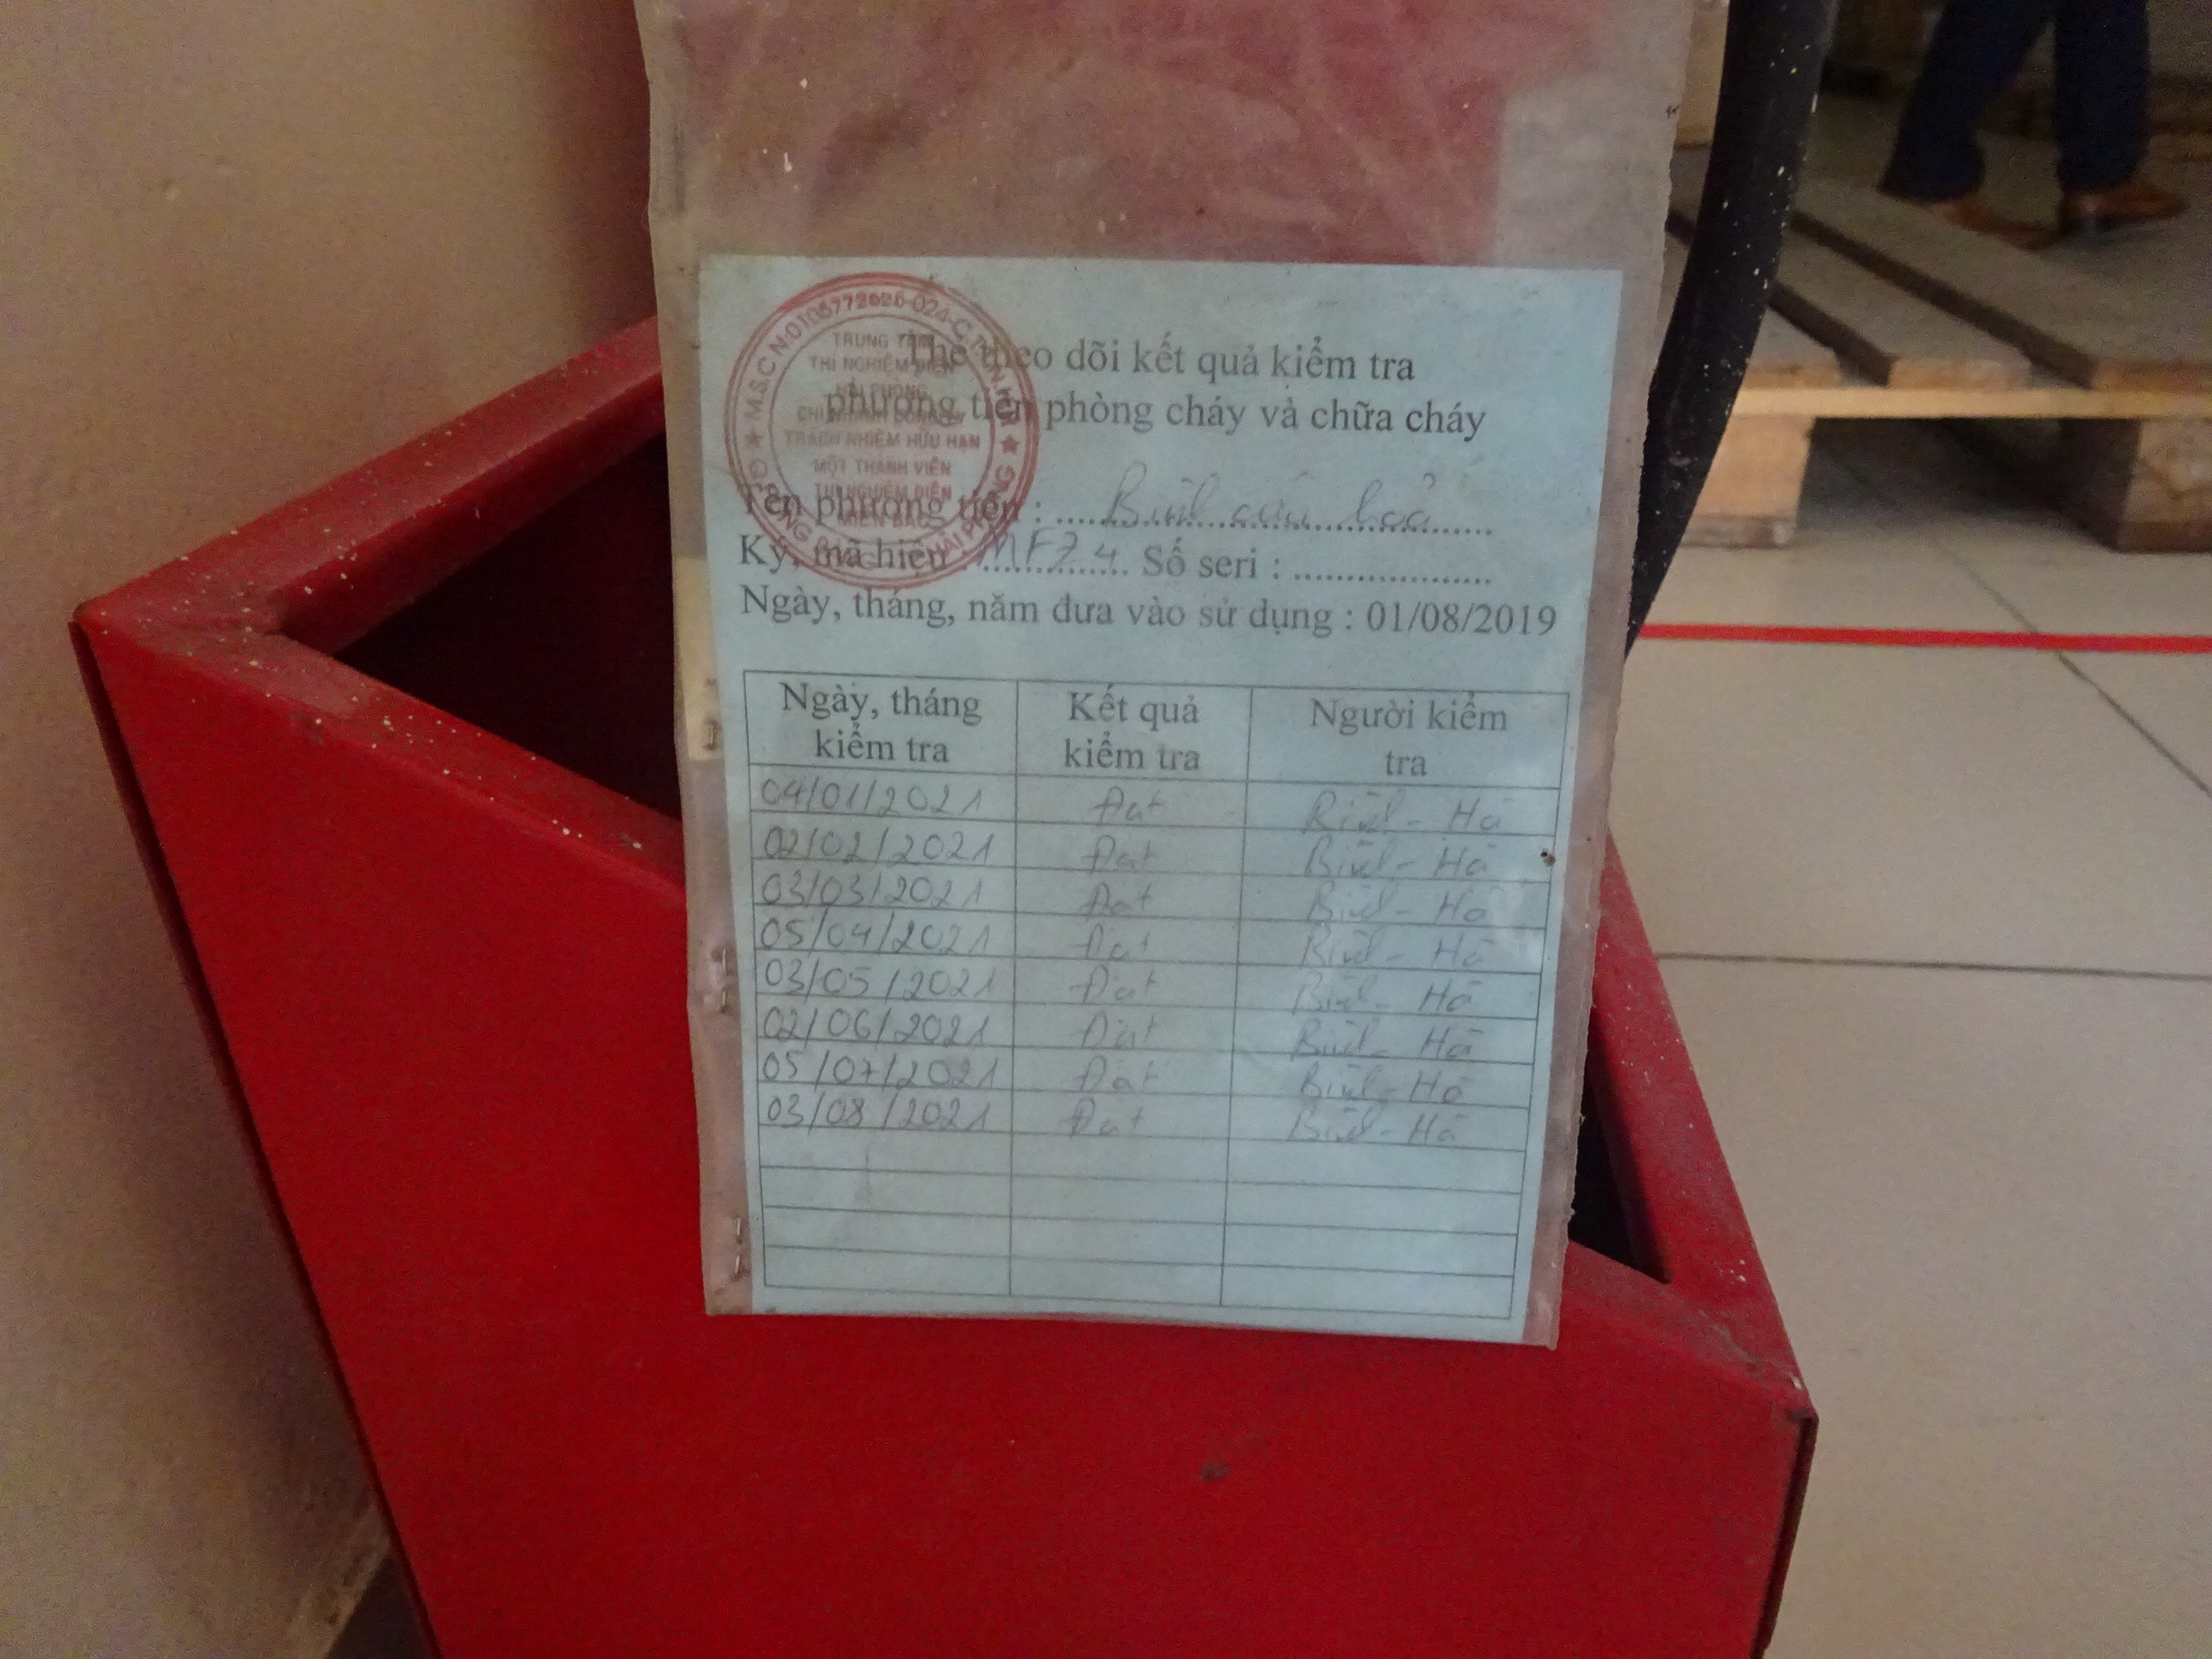 M.S.C.N:0105772026-024-C.T.T.N.H.H
TRUNG TÂM
THÍ NGHIỆM ĐIỆN
HẢI PHÒNG
CHI NHÁNH CÔNG TY
TRÁCH NHIỆM HỮU HẠN
MỘT THÀNH VIÊN
THÍ NGHIỆM ĐIỆN
MIỀN BẮC
Thẻ theo dõi kết quả kiểm tra
phương tiện phòng cháy và chữa cháy
Tên phương tiện : Bình cứu hoả
Ký, mã hiệu : MFZ4 Số seri : ....................
Ngày, tháng, năm đưa vào sử dụng : 01/08/2019
Ngày, tháng kiểm tra Kết quả kiểm tra Người kiểm tra
04/01/2021 Đạt Bình - Hà
02/02/2021 Đạt Bình - Hà
03/03/2021 Đạt Bình - Hà
05/04/2021 Đạt Bình - Hà
03/05/2021 Đạt Bình - Hà
02/06/2021 Đạt Bình - Hà
05/07/2021 Đạt Bình - Hà
03/08/2021 Đạt Bình - Hà